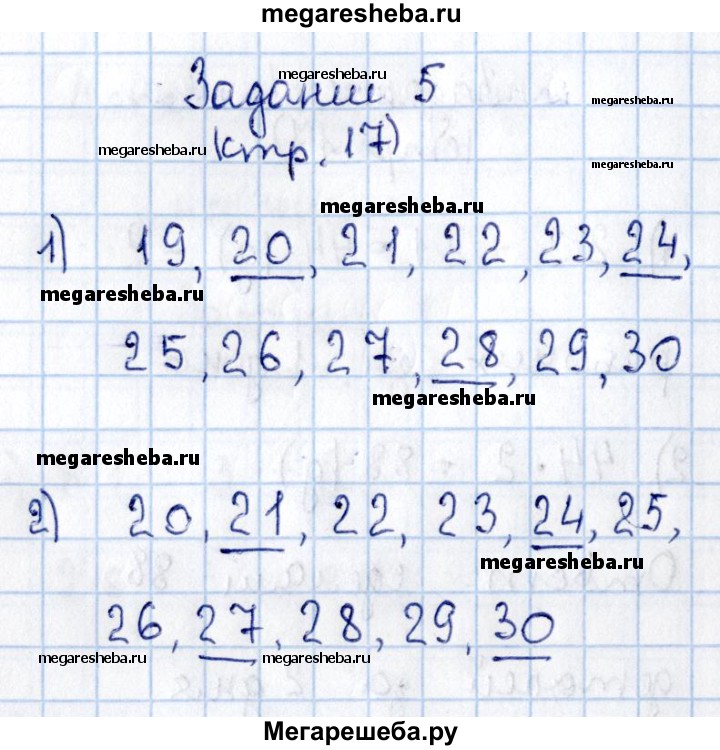 megaresheba.ru
megaresheba.ru
Задание 5
megaresheba.ru
megaresheba.ru
(стр. 17)
megaresheba.ru
megaresheba.ru
1) 19, 20, 21, 22, 23, 24,
megaresheba.ru
25, 26, 27, 28, 29, 30
megaresheba.ru
megaresheba.ru
2) 20, 21, 22, 23, 24, 25,
megaresheba.ru
26, 27, 28, 29, 30
megaresheba.ru
megaresheba.ru
megaresheba.ru
Мегарешеба.ру